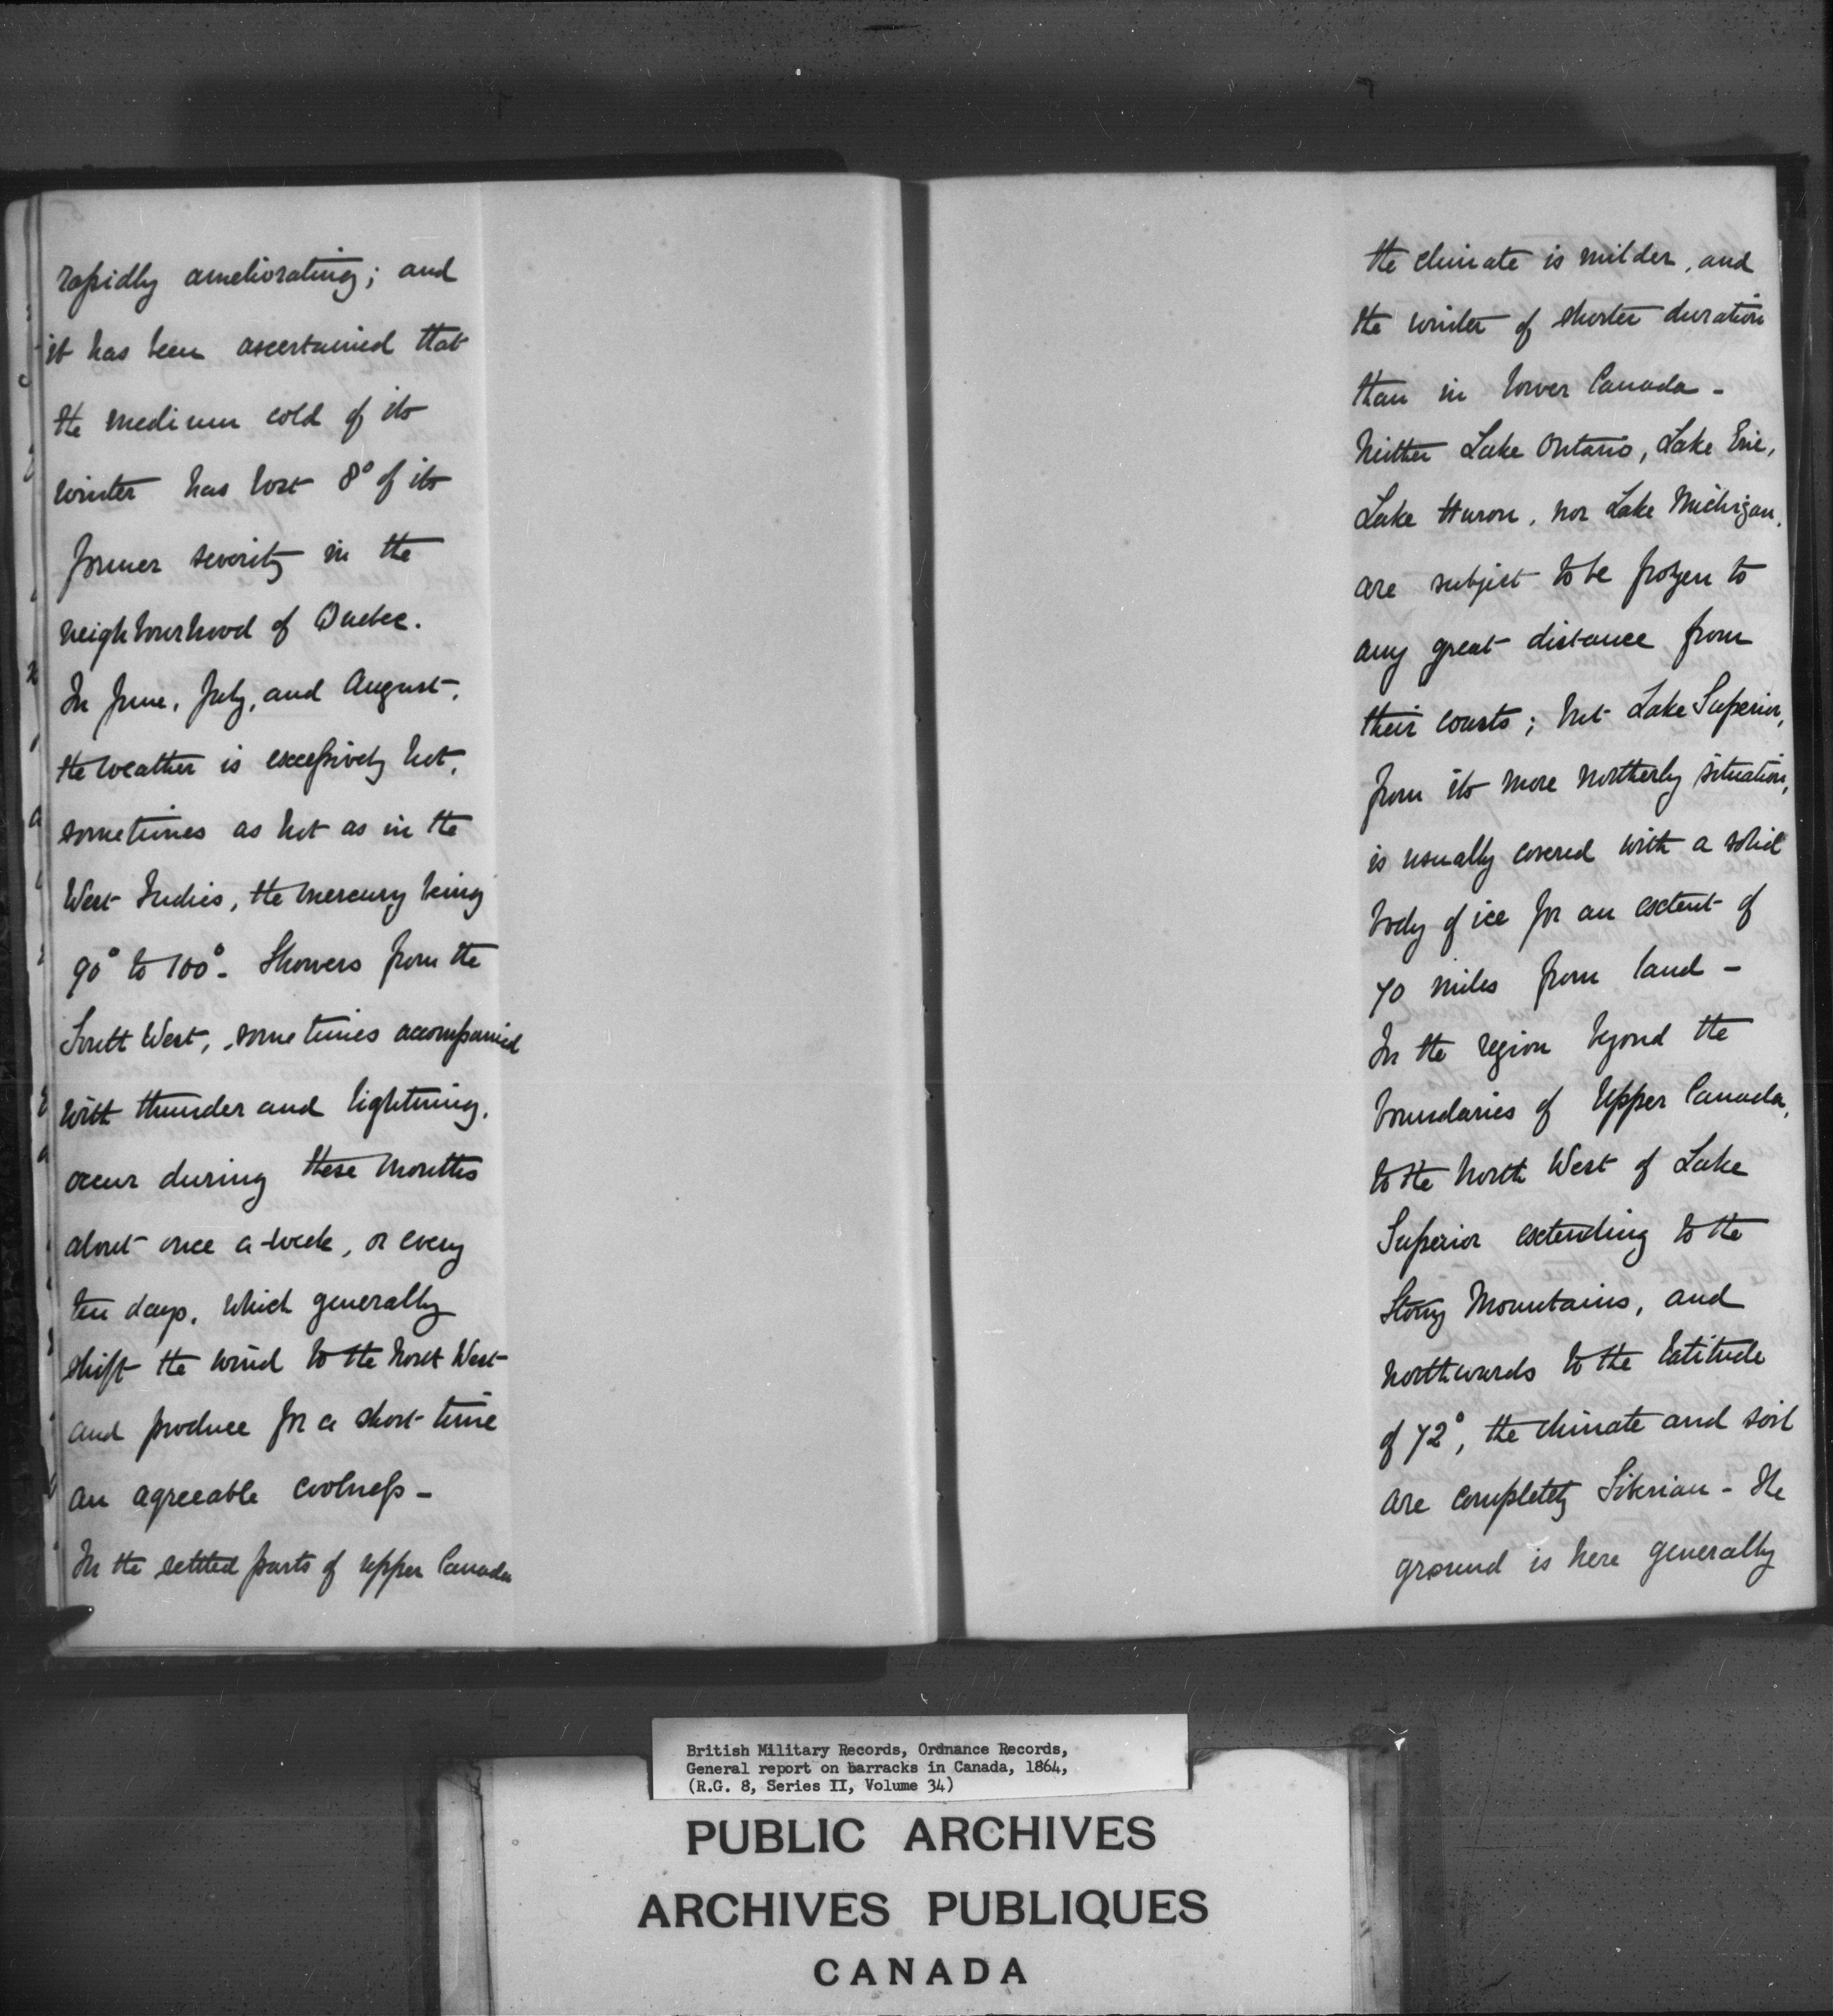 rapidly ameliorating; and
it has been ascertained that
the medium cold of its
winter has lost 8° of its
former severity in the
neighbourhood of Quebec.
In June, July, and August,
the weather is excessively hot,
sometimes as hot as in the
West Indies, the mercury being
90° to 100°. Showers from the
South West, sometimes accompanied
with thunder and lightning,
occur during these months
about once a week, or every
ten days, which generally
shift the wind to the North West
and produce for a short time
an agreeable coolness -
In the settled parts of Upper Canada
the climate is milder, and
the winter of shorter duration
than in Lower Canada -
Neither Lake Ontario, Lake Erie,
Lake Huron, nor Lake Michigan,
are subject to be frozen to
any great distance from
their coasts; but Lake Superior,
from its more northerly situation,
is usually covered with a solid
body of ice for an extent of
70 miles from land -
In the region beyond the
boundaries of Upper Canada,
to the North West of Lake
Superior extending to the
Stony Mountains, and
northwards to the latitude
of 72°, the climate and soil
are completely Siberian - The
ground is here generally
British Military Records, Ordnance Records,
General report on barracks in Canada, 1864,
(R.G. 8, Series II, Volume 34)
PUBLIC ARCHIVES
ARCHIVES PUBLIQUES
CANADA